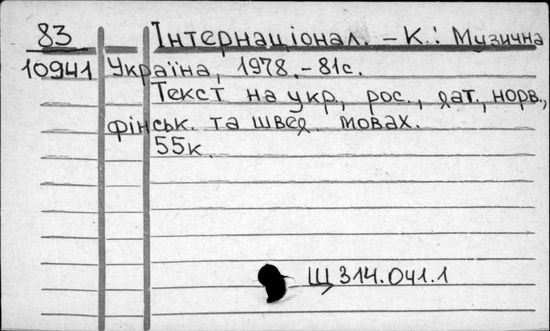 83 Інтернаціонал. – К.: Музична
10941 Україна, 1978. – 81с.
Текст на укр., рос., дат., норв.,
фінськ. та швед. мовах.
55к.
Щ 314.041.1